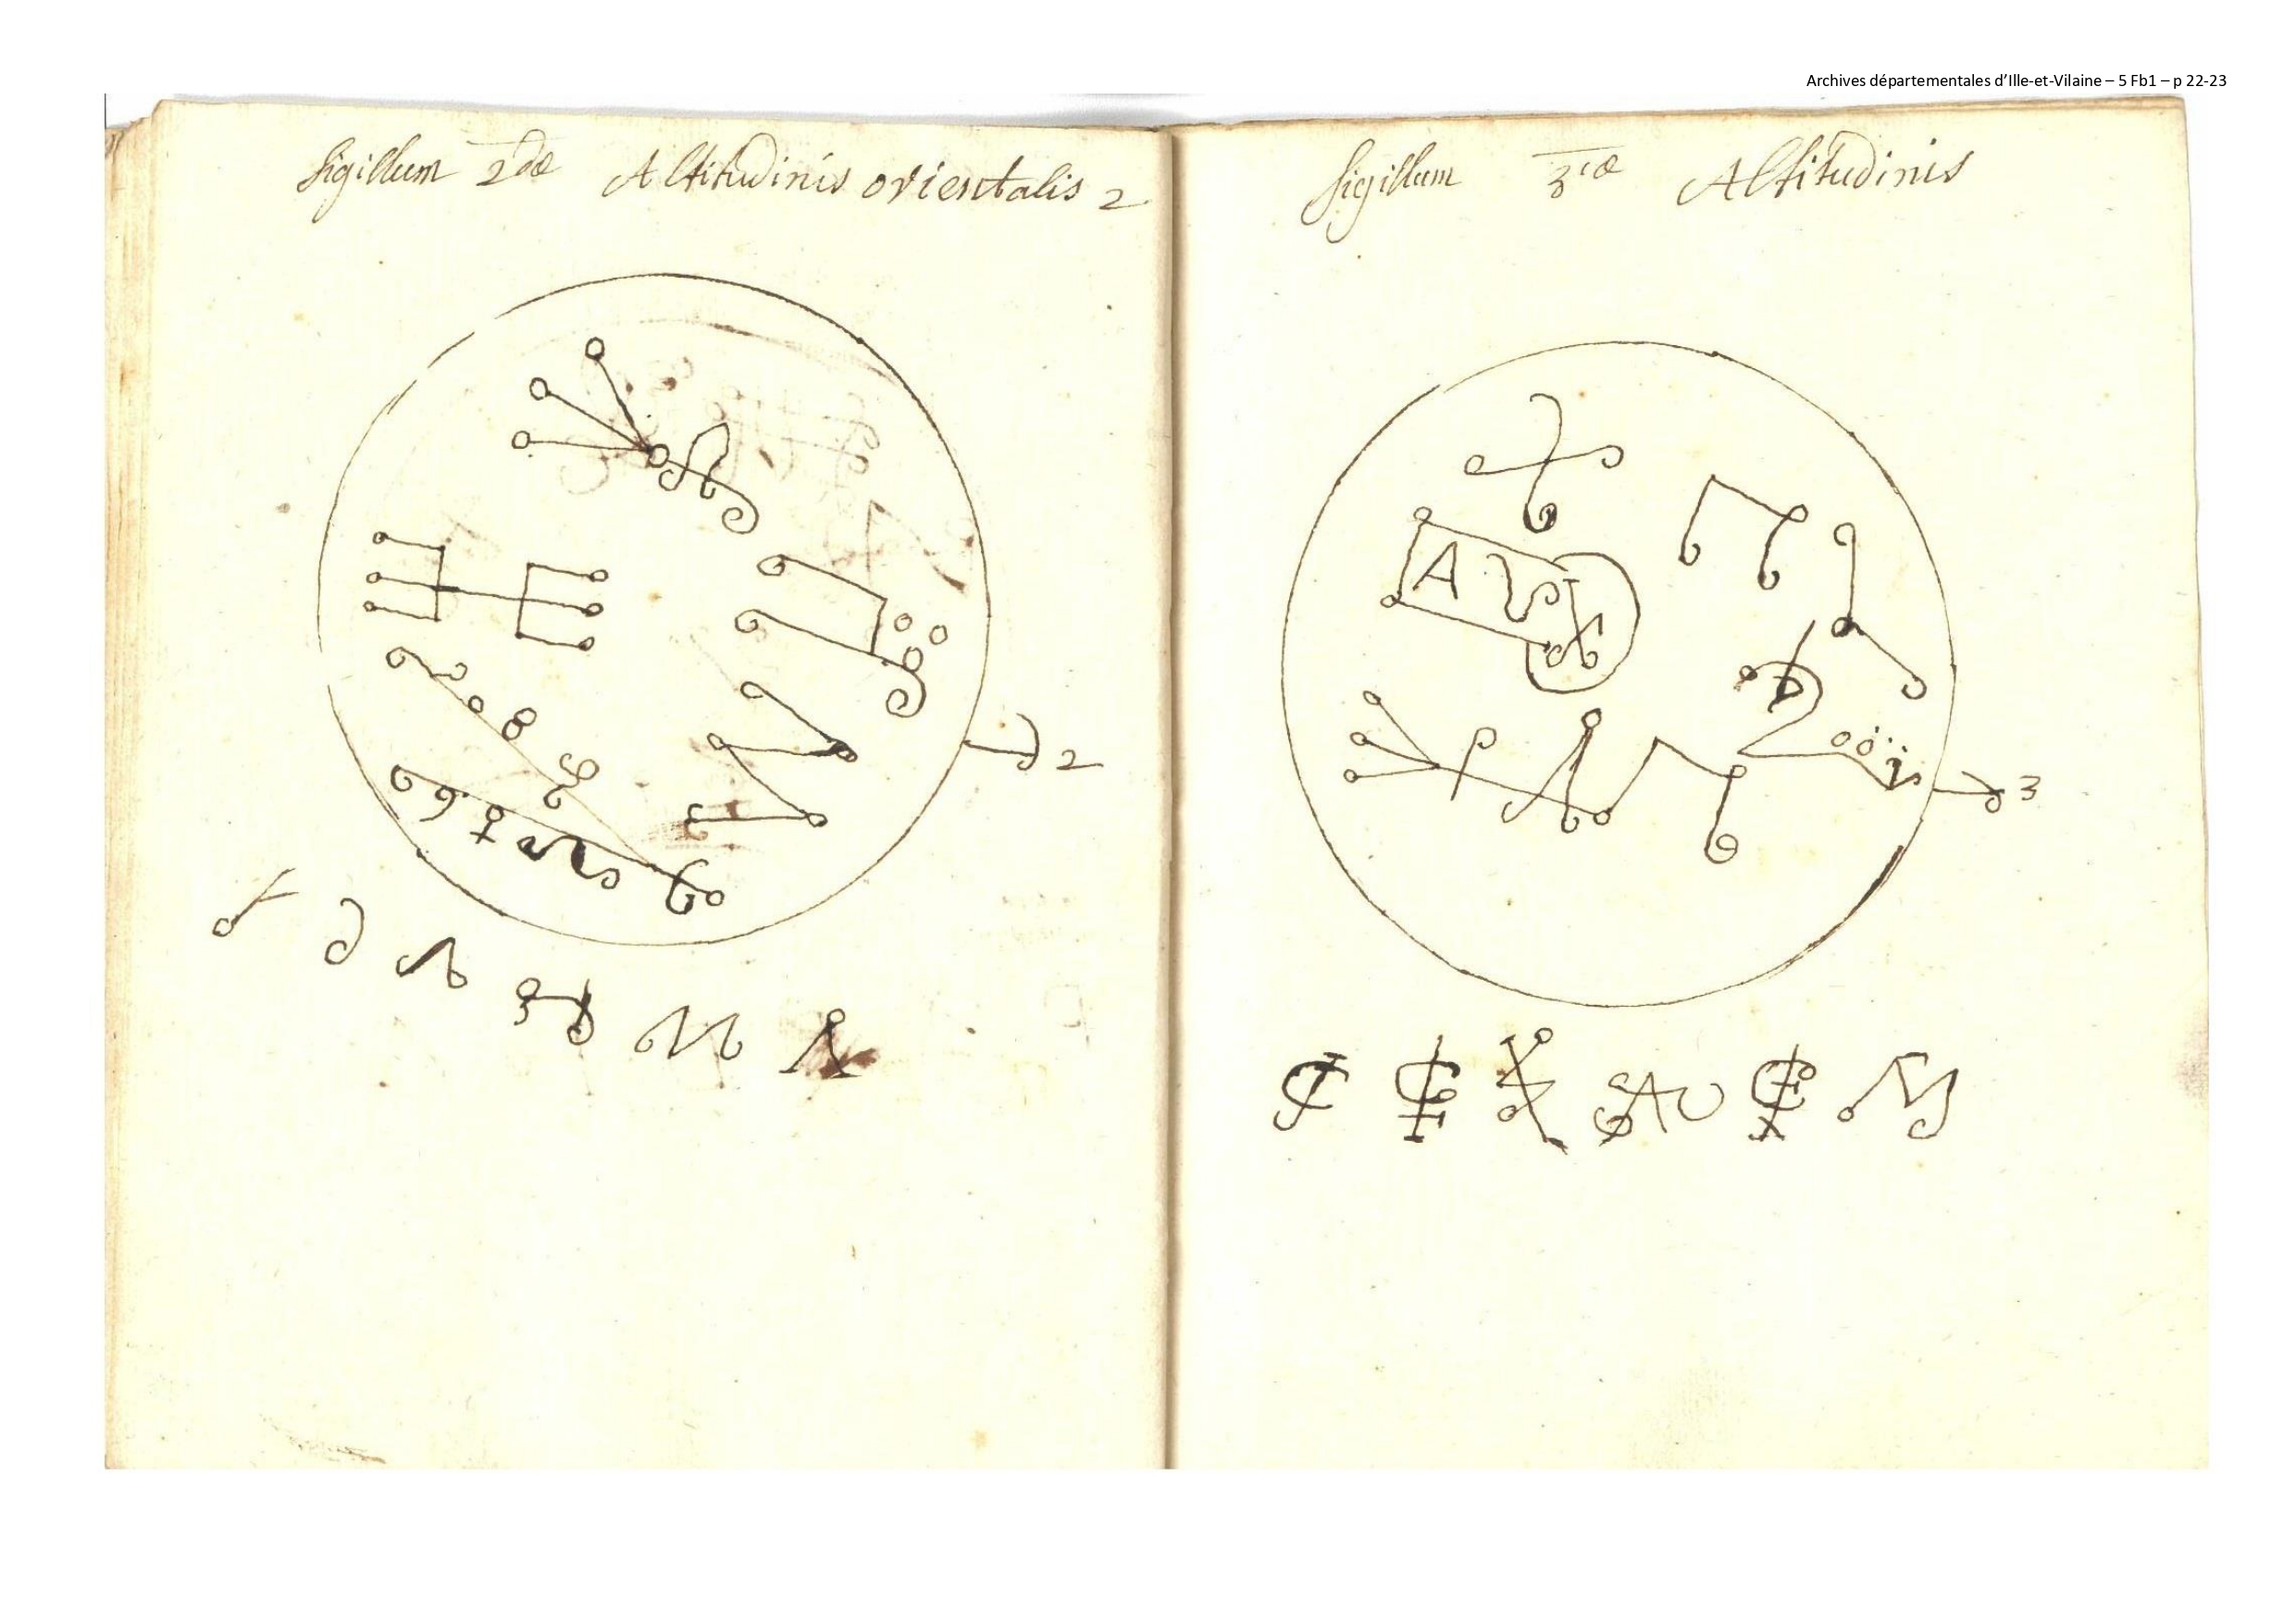 Archives départementales d’Ille-et-Vilaine – 5 Fb1 – p 22-23
Sigillum 2dæ Altitudinis orientalis 2
2
Sigillum 3iæ Altitudinis
A
3